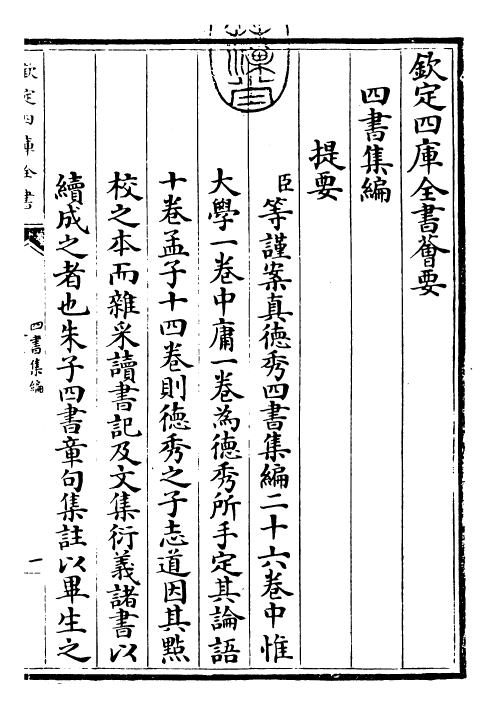 欽定四庫全書薈要
四書集編
提要
臣等謹案真徳秀四書集編二十六卷中惟
大學一卷中庸一卷為徳秀所手定其論語
十卷孟子十四卷則徳秀之子志道因其點
校之本而雜采讀書記及文集衍義諸書以
續成之者也朱子四書章句集註以畢生之
欽定四庫全書
四書集編
一